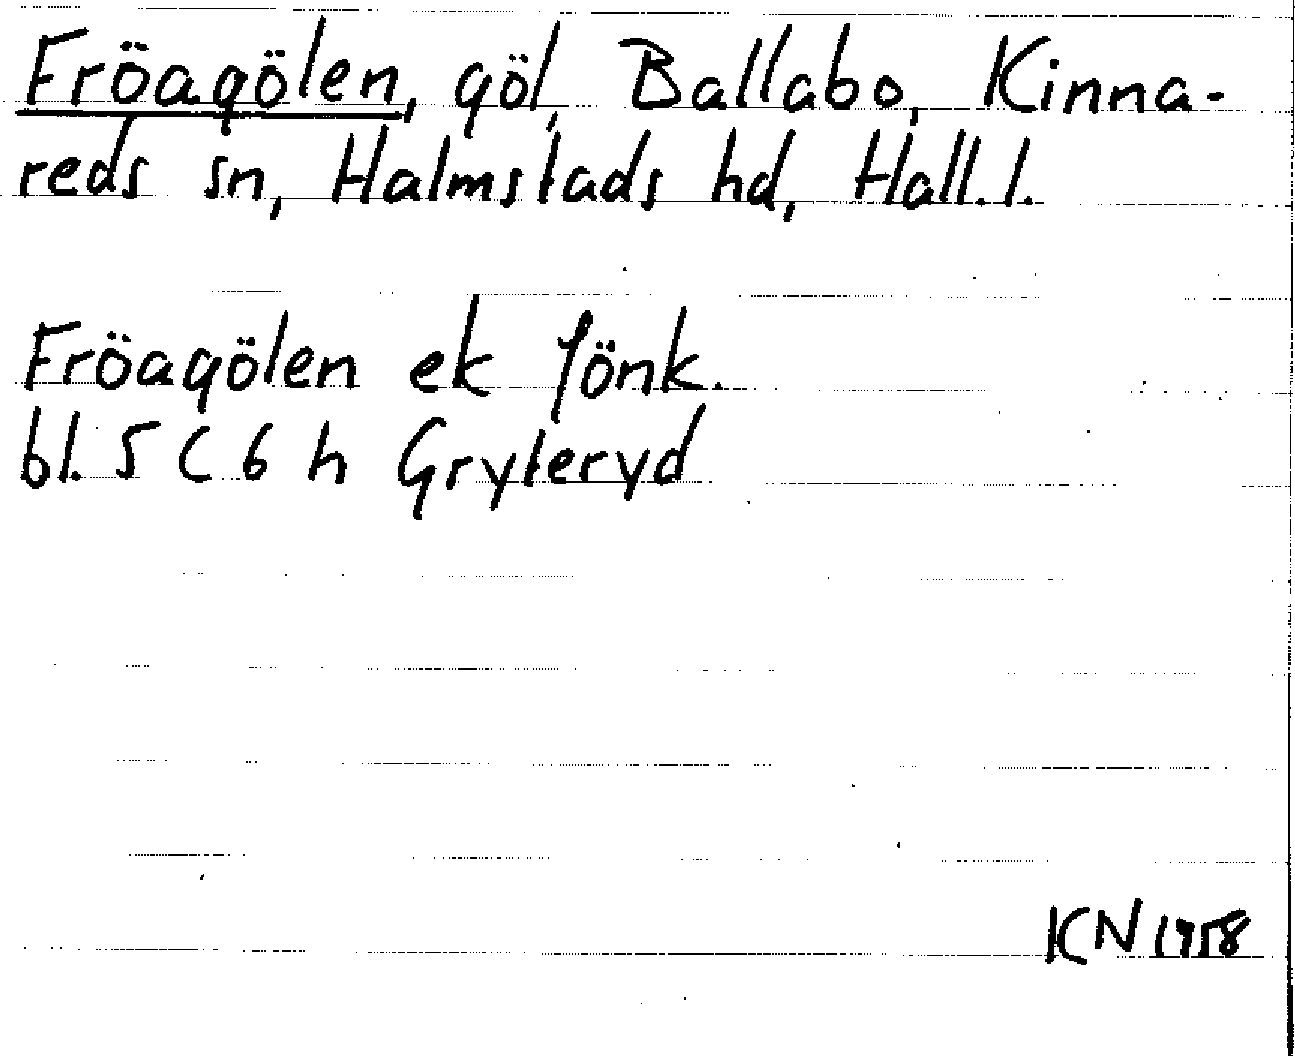 Fröagölen, göl, Ballabo, Kinna-
reds sn, Halmstads hd, Hall.l.
Fröagölen ek Jönk.
bl. 5 C 6 h Gryteryd
KN 1958